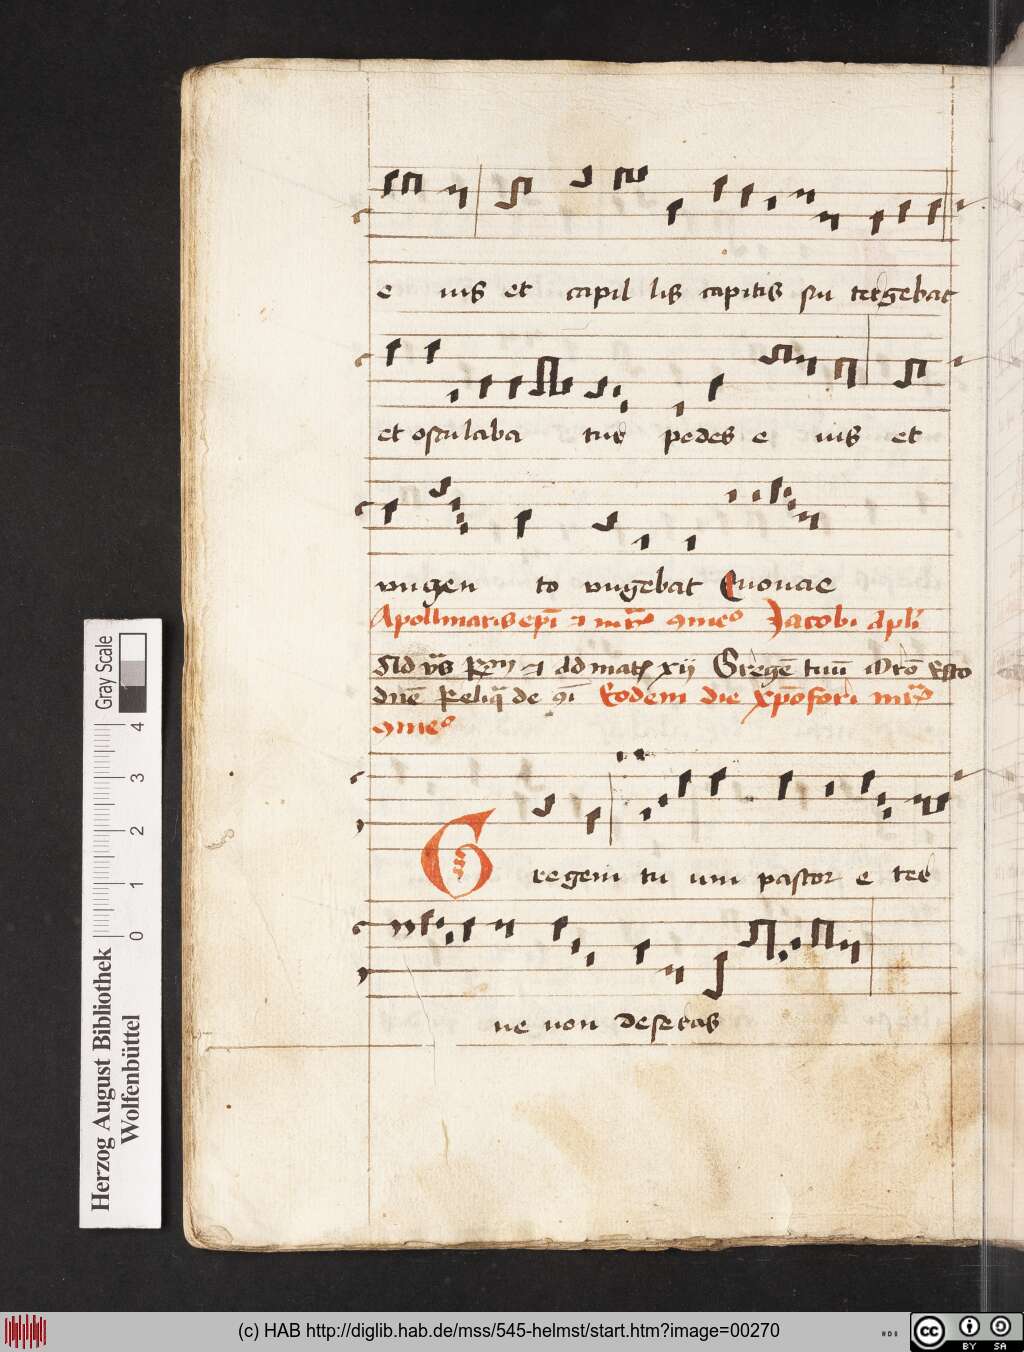 e ius et capil lis capitis sui tergebat
et osculaba tur pedes e ius et
ungen to ungebat Euouae
Apollinaris epi mris Jacobi apli
Ad ad xii Gregē tuū
de Eodem die xpofori mris
G regem tu um pastor e ter
ne non deseras
Gray Scale
4
3
2
1
0
Herzog August Bibliothek
Wolfenbüttel
(c) HAB http://diglib.hab.de/mss/545-helmst/start.htm?image=00270
cc BY SA